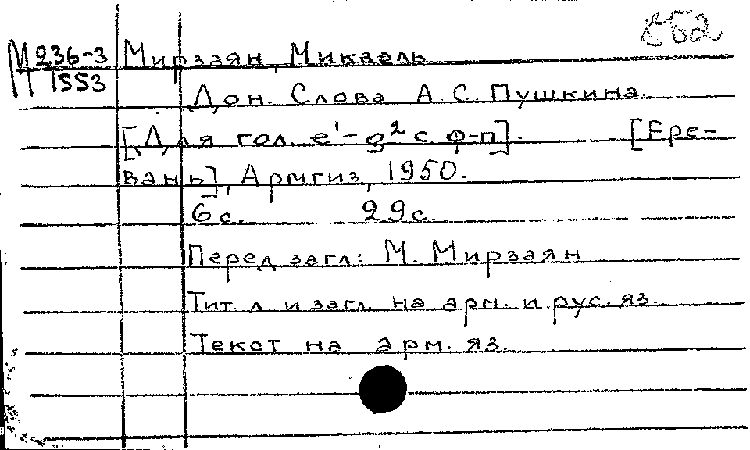 с52
М 236-3 Мирзаян, Микаель
1553
Дон. Слова А. С. Пушкина.
[Для гол. e¹-g² с ф-п]. [Ере-
вань], Армгиз, 1950.
6 с. 29 с.
Перед загл: М. Мирзаян
Тит. л и загл. на арм. и рус. яз.
Текст на арм. яз.